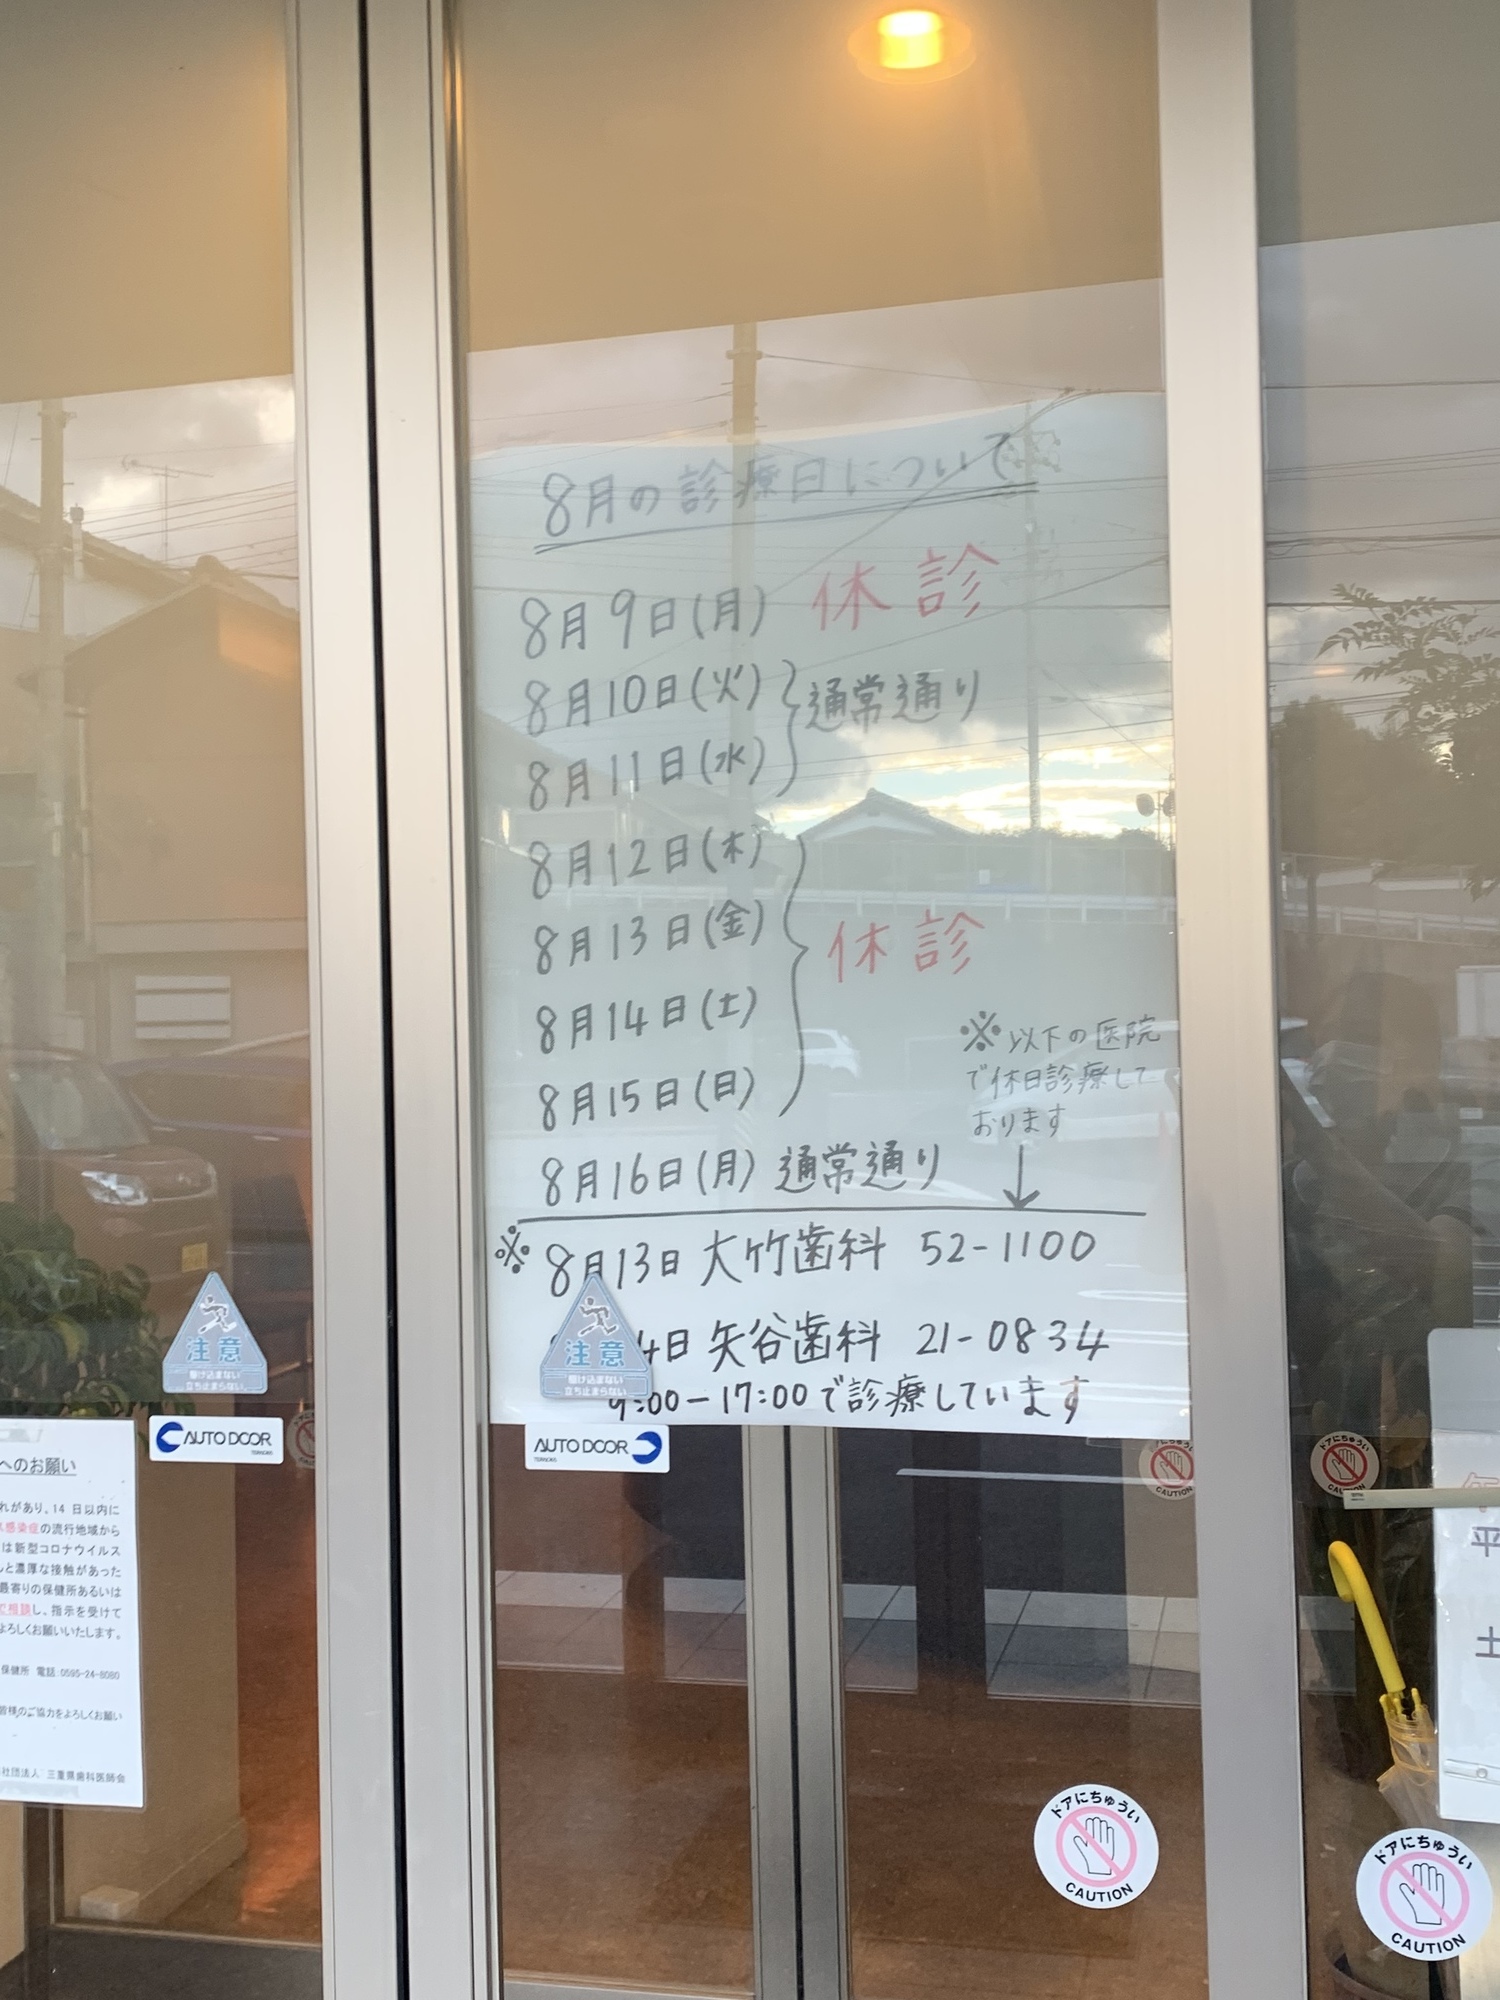 8月の診療日について
8月9日(月) 休診
8月10日(火)
8月11日(水)
通常通り
8月12日(木)
8月13日(金)
8月14日(土)
8月15日(日)
休診
※以下の医院
で休日診療して
おります
8月16日(月) 通常通り
※8月13日 大竹歯科 52-1100
4日 矢谷歯科 21-0834
9:00-17:00で診療しています
注意
駆け込まない
立ち止まらない
注意
駆け込まない
立ち止まらない
AUTO DOOR
AUTO DOOR
へのお願い
れがあり、14 日以内に
感染症の流行地域から
は新型コロナウイルス
と濃厚な接触があった
最寄りの保健所あるいは
相談し、指示を受けて
よろしくお願いいたします。
保健所 電話:0595-24-8080
皆様のご協力をよろしくお願い
社団法人 三重県歯科医師会
ドアにちゅうい
CAUTION
ドアにちゅうい
CAUTION
ドアにちゅうい
CAUTION
ドアにちゅうい
CAUTION
平
土